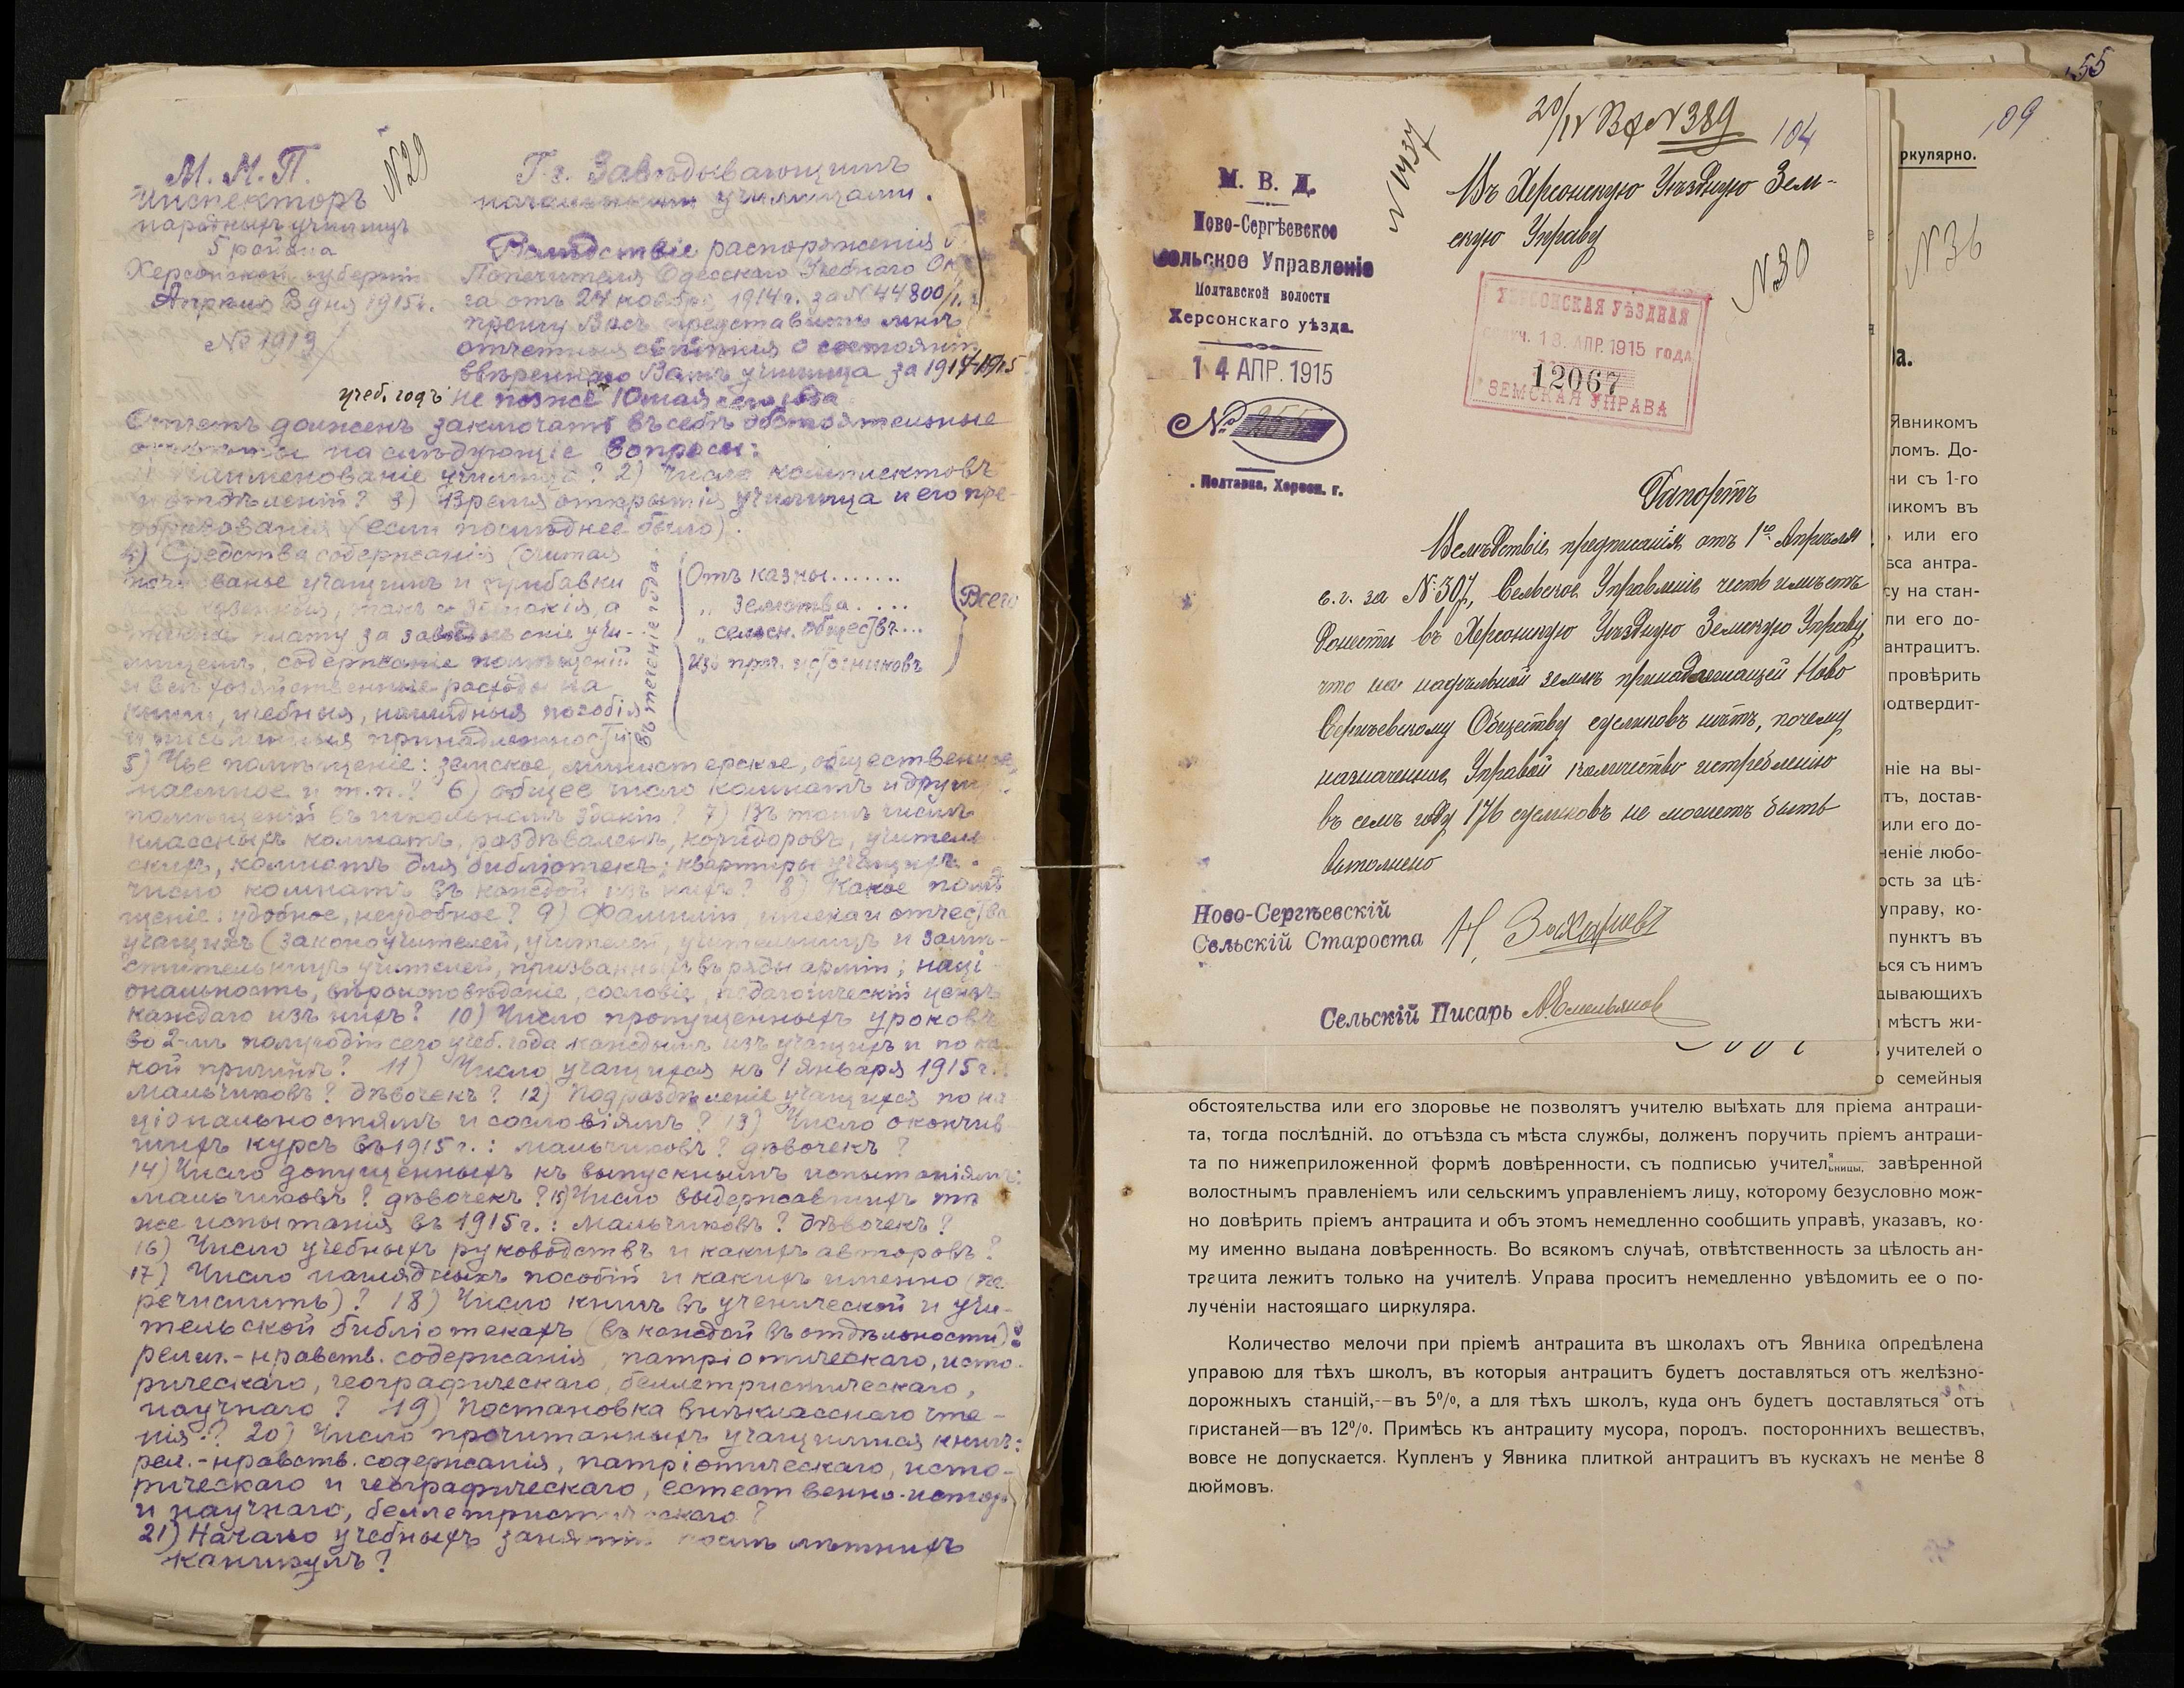 М. Н. П.
Инспекторъ
народныхъ училищъ
5 района
Херсонской губерніи
Апрѣля 3 дня 1915 г.
№ 1913
№29
Г.г. Завѣдывающимъ
начальными училищами.
Вслѣдствіе распоряженія г.
Попечителя Одесскаго Учебнаго Ок
га отъ 24 ноября 1914 г. за № 44800/
прошу Васъ представить мнѣ
отчетныя свѣдѣнія о состояніи
ввѣреннаго Вамъ училища за 1914-1915
учеб. годъ не позже 10 мая сего года
Отчетъ долженъ заключать въ себѣ обстоятельные
отвѣты на слѣдующіе вопросы:
1) Наименованіе училища? 2) Число комплектовъ
и отдѣленій? 3) Время открытія училища и его пре-
образованія (если послѣднее было).
4) Средства содержанія (считая
жалованье учащимъ и прибавки
казенныя, такъ и земскія, а
также плату за завѣдываніе учи-
лищемъ, содержаніе помѣщеній
и всѣ хозяйственные расходы на
книги, учебныя, наглядныя пособія
и письменныя принадлежности)
въ теченіе года
Отъ казны.......
„ земства.....
„ сельск. обществъ...
Изъ проч. источниковъ
Всего
5) Чье помѣщеніе: земское, министерское, общественное,
наемное и т.п.? 6) общее число комнатъ и други
помѣщеній въ школьномъ зданіи? 7) Въ томъ числѣ
классныхъ комнатъ, раздѣваленъ, коридоровъ, учитель-
скихъ, комнатъ для библіотекъ; квартиры учащихъ.
число комнатъ въ каждой изъ нихъ? 8) Какое помѣ
щеніе: удобное, неудобное? 9) Фамиліи, имена и отчества
учащихъ (законоучителей, учителей, учительницъ и замѣ-
стительницъ учителей, призванныхъ въ ряды арміи; наці-
ональность, вѣроисповѣданіе, сословіе, педагогическій цензъ
каждаго изъ нихъ? 10) Число пропущенныхъ уроковъ
во 2-мъ полугодіи сего учеб. года каждымъ изъ учащихъ и по ка-
кой причинѣ? 11) Число учащихся къ 1 января 1915 г.:
мальчиковъ? дѣвочекъ? 12) Подраздѣленіе учащихся по на
ціональностямъ и сословіямъ? 13) Число окончив-
шихъ курсъ въ 1915 г.: мальчиковъ? дѣвочекъ?
14) Число допущенныхъ къ выпускнымъ испытаніямъ:
мальчиковъ? дѣвочекъ? 15) Число выдержавшихъ тѣ
же испытанія въ 1915 г.: мальчиковъ? дѣвочекъ?
16) Число учебныхъ руководствъ и какихъ авторовъ?
17) Число наглядныхъ пособій и какихъ именно (пе-
речислить)? 18) Число книгъ въ ученической и учи-
тельской библіотекахъ (въ каждой въ отдѣльности):
религ.-нравств. содержанія, патріотическаго, исто-
рическаго, географическаго, беллетристическаго,
научнаго? 19) Постановка внѣкласснаго чте-
нія? 20) Число прочитанныхъ учащимися книгъ:
рел.-нравств. содержанія, патріотическаго, исто-
рическаго и географическаго, естественно-истор
и научнаго, беллетристическаго?
21) Начало учебныхъ занятій послѣ лѣтнихъ
каникулъ?
55
109
№36
ркулярно.
20/IV Вх №389
104
№ 1437
М. В. Д.
Ново-Сергѣевское
Сельское Управленіе
Полтавской волости
Херсонскаго уѣзда.
14 АПР. 1915
№
Полтавка, Херсон. г.
Въ Херсонскую Уѣздную Зем-
скую Управу
№30
ХЕРСОНСКАЯ УѢЗДНАЯ
ПОЛУЧ. 18. АПР. 1915 ГОДА
12067
ЗЕМСКАЯ УПРАВА
Рапортъ
Вслѣдствіе предписанія отъ 1го Апрѣля
с.г. за №307, Сельское Управленіе честь имѣетъ
донести въ Херсонскую Уѣздную Земскую Управу
что на надѣльной землѣ принадлежащей Ново
Сергѣевскому Обществу сусликовъ нѣтъ, почему
назначенное Управой количество истребленію
въ семъ году 176 сусликовъ не можетъ быть
выполнено
Ново-Сергѣевскій
Сельскій Староста
Сельскій Писарь А Емельянов
а.
Явникомъ
ломъ. До-
ни съ 1-го
икомъ въ
или его
са антра-
су на стан-
ли его до-
антрацитъ.
провѣрить
одтвердит-
ніе на вы-
тъ, достав-
или его до-
неніе любо-
ость за цѣ-
управу, ко-
пунктъ въ
ься съ нимъ
дывающихъ
мѣстъ жи-
учителей о
о семейныя
обстоятельства или его здоровье не позволятъ учителю выѣхать для пріема антраци-
та, тогда послѣдній. до отъѣзда съ мѣста службы, долженъ поручить пріемъ антраци-
та по нижеприложенной формѣ довѣренности, съ подписью учител я/ьницы, завѣренной
волостнымъ правленіемъ или сельскимъ управленіемъ лицу, которому безусловно мож-
но довѣрить пріемъ антрацита и объ этомъ немедленно сообщить управѣ, указавъ, ко-
му именно выдана довѣренность. Во всякомъ случаѣ, отвѣтственность за цѣлость ан-
трацита лежитъ только на учителѣ. Управа проситъ немедленно увѣдомить ее о по-
лученіи настоящаго циркуляра.
Количество мелочи при пріемѣ антрацита въ школахъ отъ Явника опредѣлена
управою для тѣхъ школъ, въ которыя антрацитъ будетъ доставляться отъ желѣзно-
дорожныхъ станцій,—въ 5%, а для тѣхъ школъ, куда онъ будетъ доставляться отъ
пристаней—въ 12%. Примѣсь къ антрациту мусора, породъ. постороннихъ веществъ,
вовсе не допускается. Купленъ у Явника плиткой антрацитъ въ кускахъ не менѣе 8
дюймовъ.